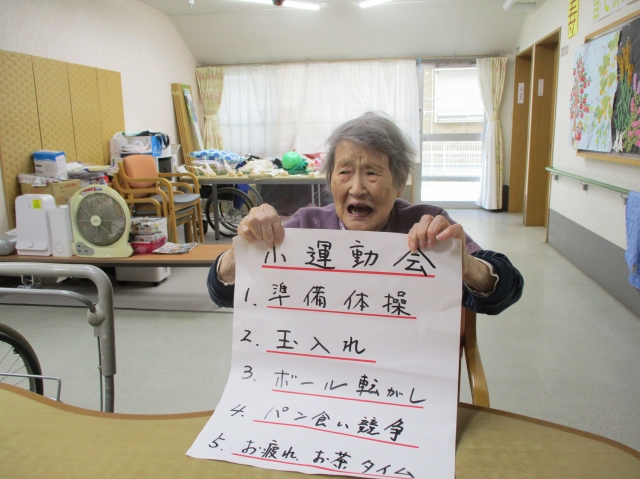 小運動会
1. 準備体操
2. 玉入れ
3. ボール転がし
4. パン食い競争
5. お疲れ、お茶タイム